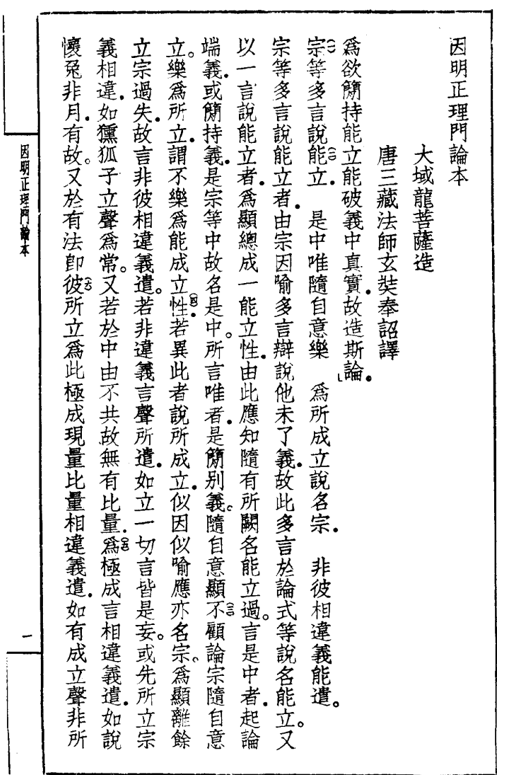 因明正理門論本
大域龍菩薩造
唐三藏法師玄奘奉詔譯
爲欲簡持能立能破義中眞實。故造斯論。
宗等多言說能立　是中唯隨自意樂　爲所成立說名宗　非彼相違義能遣。
宗等多言說能立者。由宗因喻多言辯說他未了義。故此多言於論式等說名能立。又
以一言說能立者。爲顯總成一能立性。由此應知隨有所闕名能立過。言是中者。起論
端義。或簡持義。是宗等中故名是中。所言唯者。是簡別義。隨自意顯不顧論宗隨自意
立。樂爲所立。謂不樂爲能成立性。若異此者說所成立。似因似喻應亦名宗。爲顯離餘
立宗過失。故言非彼相違義遣。若非違義言聲所遣。如立一切言皆是妄。或先所立宗
義相違。如獯狐子立聲爲常。又若於中由不共故無有比量。爲極成言相違義遣。如說
懷兔非月。有故。又於有法卽彼所立爲此極成現量比量相違義遣。如有成立聲非所
因明正理門論本
一